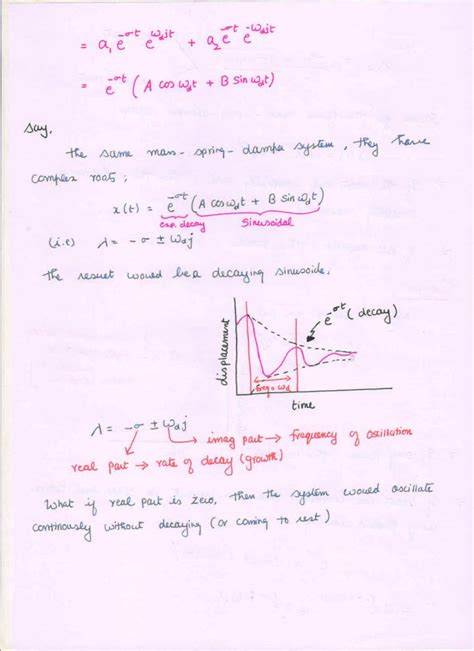 = a₁ e^-σt e^ω_djt + a₂ e^-σt e^-ω_djt
= e^-σt (A cos ω_dt + B sin ω_dt)
Say,
the same mass-spring-damper system, they have
complex roots;
x(t) = e^-σt (A cos ω_dt + B sin ω_dt)
exp. decay sinusoidal
(i.e) λ = -σ ± ω_dj
the result would be a decaying sinusoide.
e^-σt (decay)
displacement
freq = ω_d
time
λ = -σ ± ω_dj
imag part → frequency of oscillation
real part → rate of decay (growth)
What if real part is zero, then the system would oscillate
continously without decaying (or coming to rest)